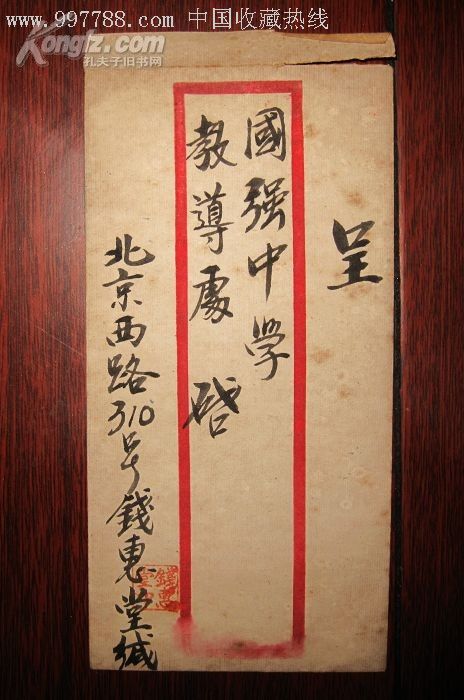 www.997788.com 中国收藏热线
Kongfz.com
孔夫子旧书网
呈
國强中学
教導處 啓
北京西路310号錢惠堂缄
錢惠堂